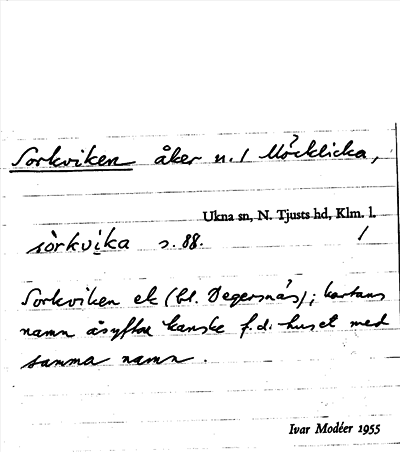 Sorkviken åker n. 1 Möcklicka,
Ukna sn, N. Tjusts hd, Klm. l.
sòrkvika s. 88. 1
Sorkviken ek (bl. Degersnäs); kartans
namn åsyftar kanske f.d. huset med
samma namn.
Ivar Modéer 1955